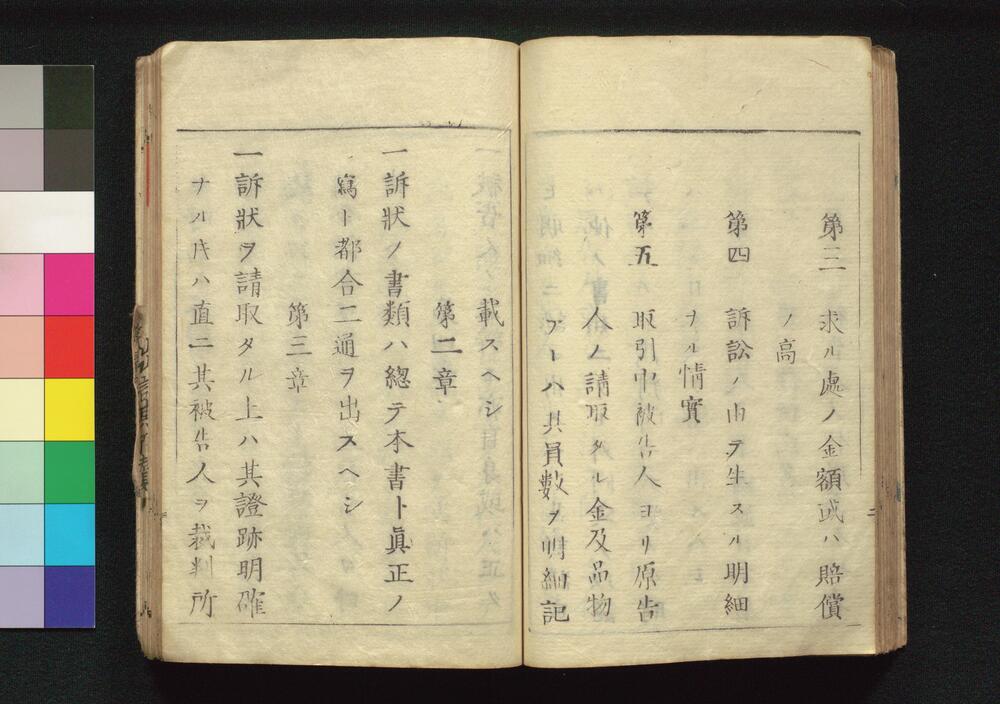 第三　求ル處ノ金額或ハ賠償
ノ高
第四　訴訟ノ由テ生スル明細
ヲル情實
第五　取引中被告人ヨリ原告
人ノ請取タル金及品物
アレハ其員數ヲ明細記
載スヘシ
第二章
一訴狀ノ書類ハ總テ本書ト眞正ノ
寫ト都合二通ヲ出スヘシ
第三章
一訴狀ヲ請取タル上ハ其證跡明確
ナル片ハ直ニ其被告人ヲ裁判所
二